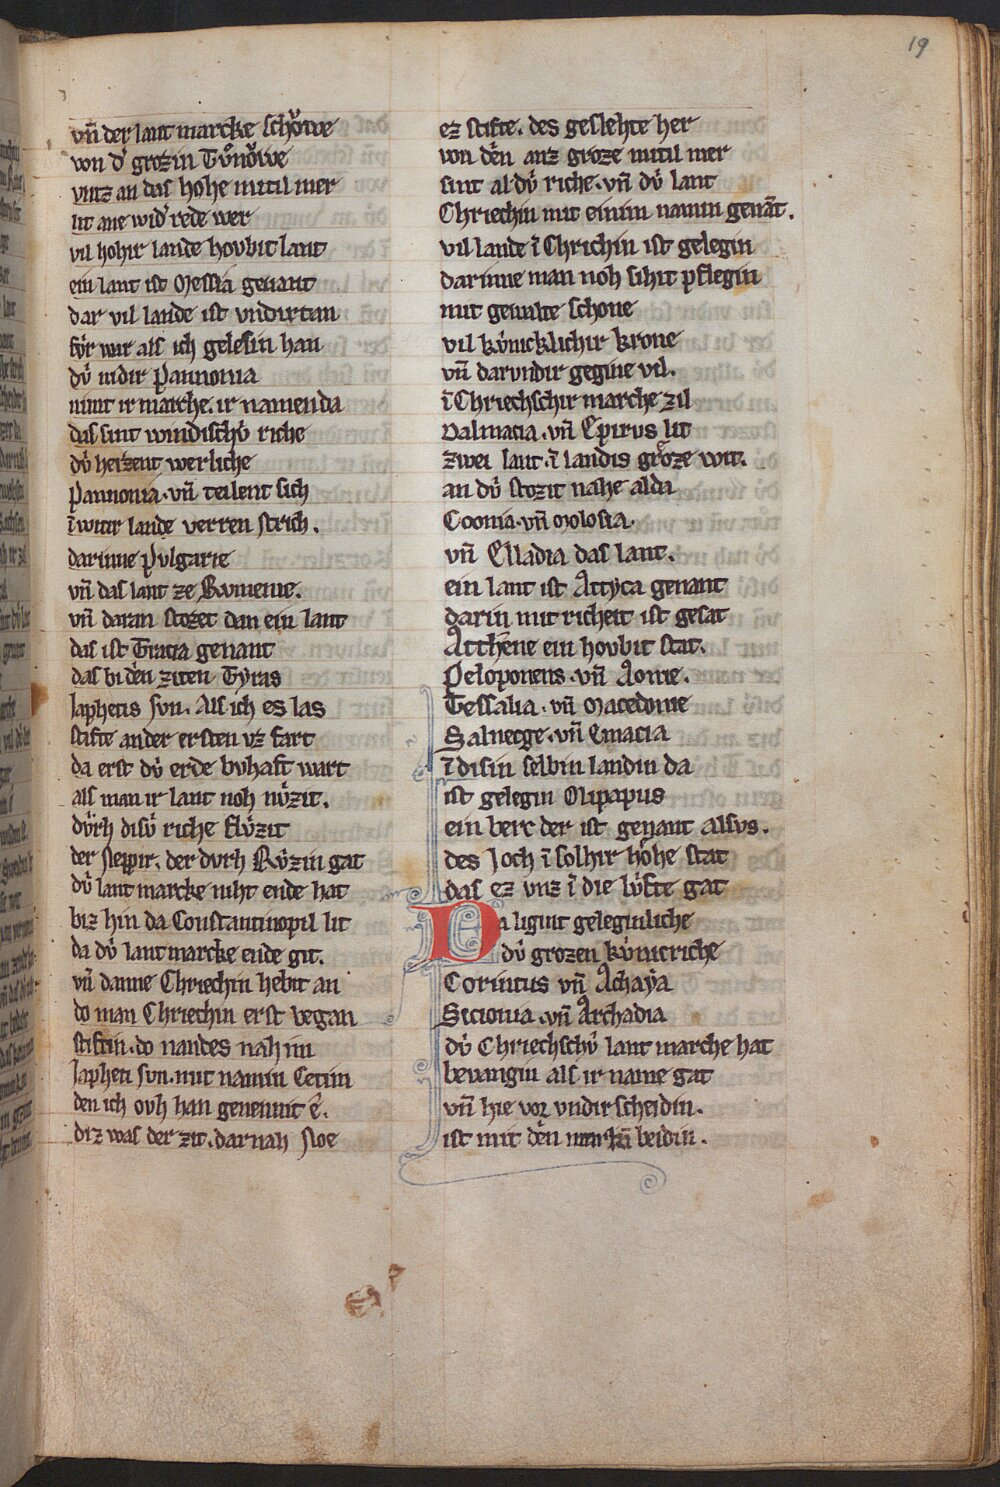 19
vn̄ der lant marcke schoͮwe
von d' grozin Tuͦnoͮwe
vntz an das hohe mitil mer
lit ane wid' rede wer
vil hohir lande hovbit lant
ein lant ist Messia genant
dar vil lande ist vndirtan
fuͥr war als ich gelesin han
duͥ nidir Pannonia
nimt ir marche. ir namen da
das sint windischuͥ riche
duͥ heizent werliche
Pannonia. vn̄ teilent sich
ī witir lande verren strich.
darinne Pvlgarie
vn̄ das lant ze Rvmenie.
vn̄ daran stozet dan ein lant
das ist Tracia genant
das bi den ziten Tyras
Japhetis svn. Als ich es las
stifte an der ersten vz fart
da erst duͥ erde bvhaft wart
als man ir lant noh nuͥzit.
duͥrh disuͥ riche fluͥzit
der Neppir. der dvrh Ruͥzin gat
duͥ lant marcke niht ende hat
biz hin da Constantinopil lit
da duͥ lantmarcke ende git.
vn̄ danne Chriechin hebit an
do man Chriechin erst began
stiftin. do nandes nah im
Japheti svn. mit namin Cetim
den ich ovh han genennit e.
diz was der zit. darnah Noe
ez stifte. des geslehte her
von den anz groze mitil mer
sint al duͥ riche. vn̄ duͥ lant
Chriechin mit einim namin genāt.
vil lande ī Chrichin ist gelegin
darinne man noh sihit pflegin
mit gewalte schone
vil kuͥnicklichir krone
vn̄ darvndir gegine vil.
ī Chriechschir marche zil
Dalmacia. vn̄ Epirvs lit
zwei lant. ī landis groͤze wit.
an duͥ stozit nahe alda
Coonia. vn̄ Molosia.
vn̄ Elladia das lant.
ein lant ist Attyca genant
darin mit richeit ist gesat
Atthene ein hovbit stat.
Peloponens. vn̄ Aonie.
Tessalia. vn̄ Macedonie
Salnecge. vn̄ Emacia
ī disin selbin landin da
ist gelegin Olipapus
ein berc der ist genant alsvs.
des Joch ī solhir hoͤhe stat
das ez vnz ī die luͥfte gat
Da ligint geleginliche
duͥ grozen kuͥnicriche
Corintus vn̄ Achaya
Sicionia. vn̄ Archadia
duͥ Chriechschuͥ lant marche hat
bevangin als ir name gat
vn̄ hie vor vndirscheidin.
ist mit den markn̄ beidin.